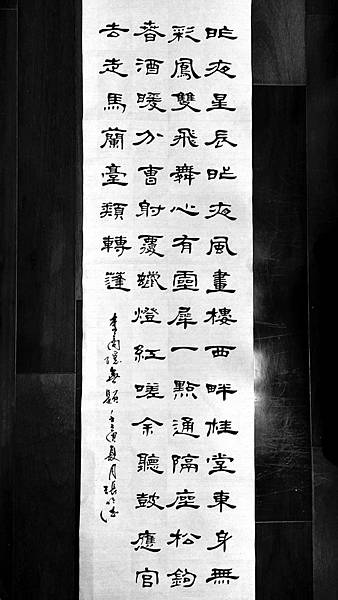 昨夜星辰昨夜風畫樓西畔桂堂東身無
彩鳳雙飛舞心有靈犀一點通隔座松鉤
春酒暖分曹射覆蠟燈紅嗟余聽鼓應官
去走馬蘭臺類轉篷
李商隱無題 壬寅夏月張